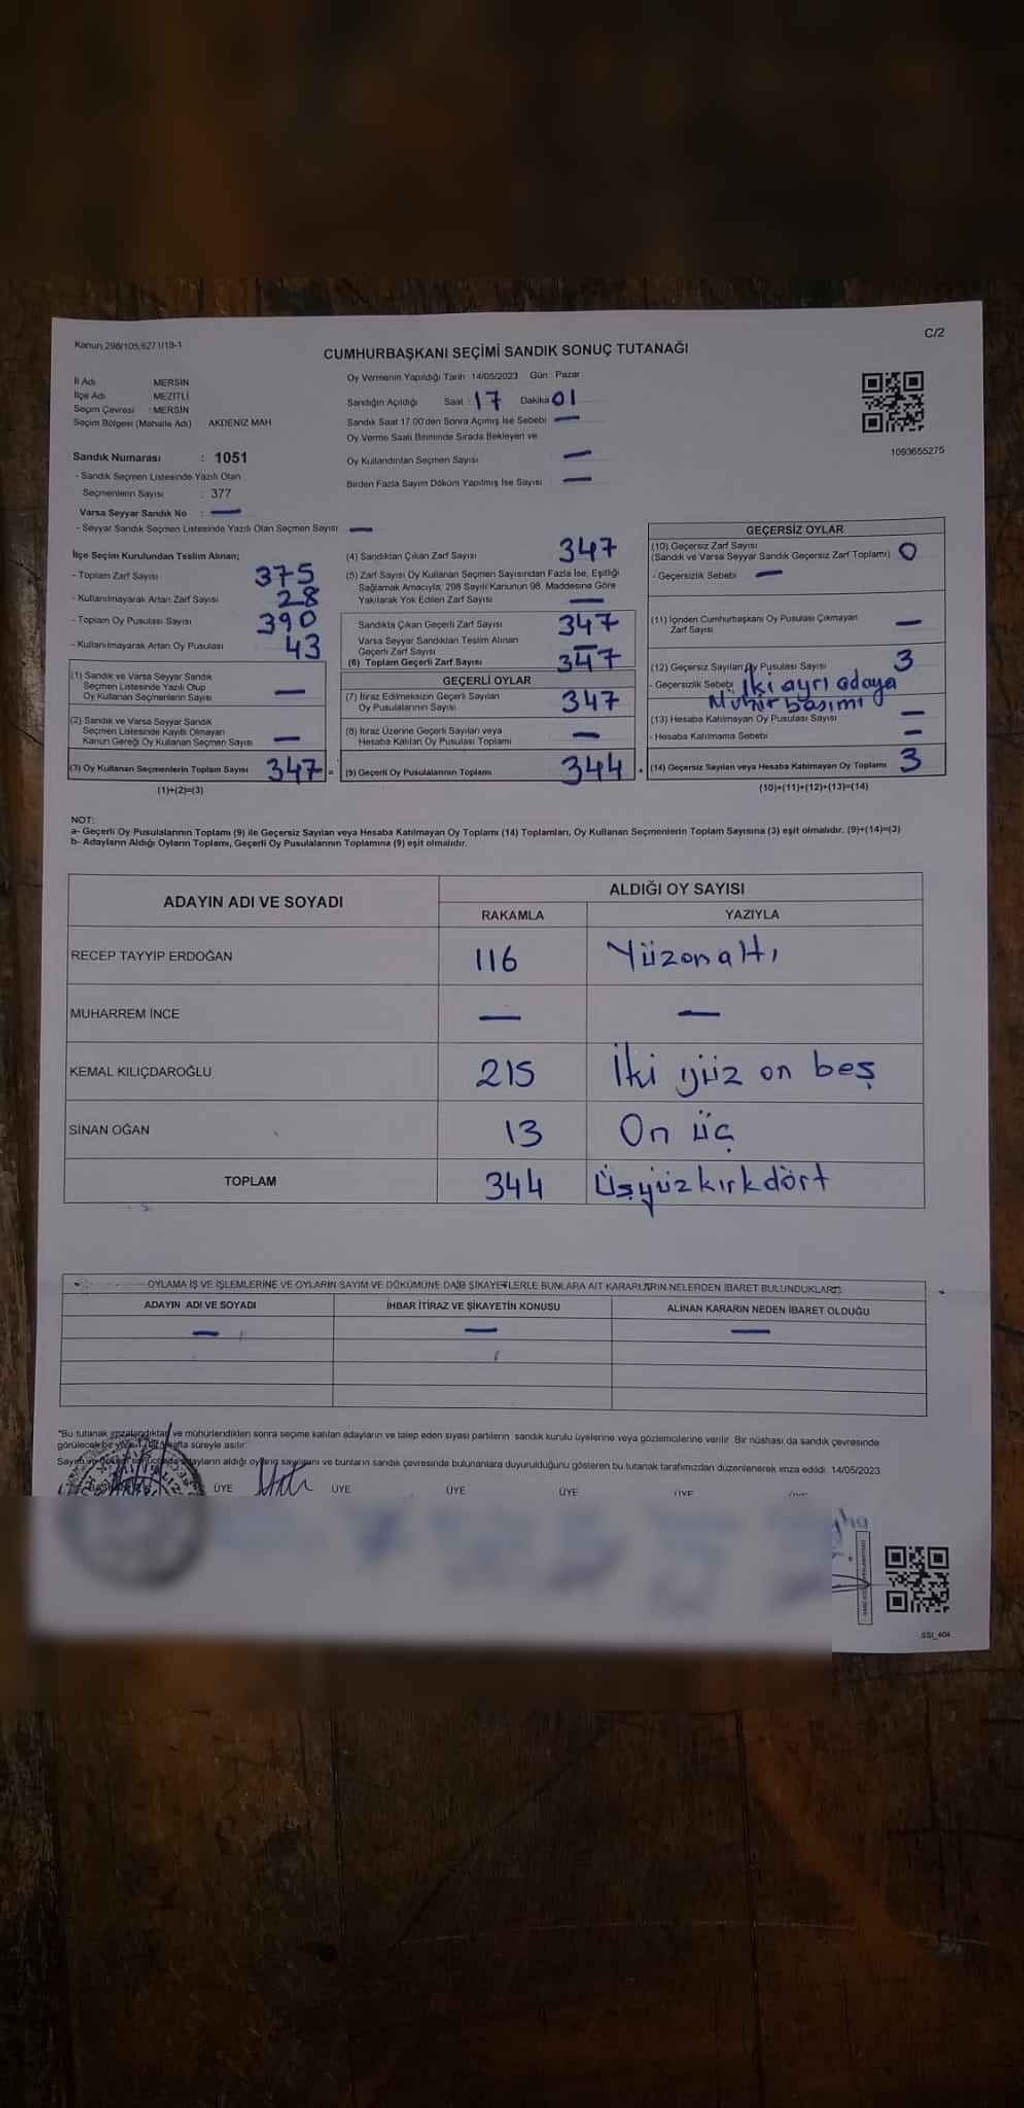 Kanun 298/105,6271/19-1
C/2
CUMHURBAŞKANI SEÇİMİ SANDIK SONUÇ TUTANAĞI
İl Adı MERSİN
İlçe Adı MEZİTLİ
Seçim Çevresi : MERSİN
Seçim Bölgesi (Mahalle Adı) AKDENİZ MAH
Sandık Numarası : 1051
- Sandık Seçmen Listesinde Yazılı Olan
Seçmenlerin Sayısı : 377
Varsa Seyyar Sandık No : —
- Seyyar Sandık Seçmen Listesinde Yazılı Olan Seçmen Sayısı —
Oy Vermenin Yapıldığı Tarih :14/05/2023 Gün : Pazar
Sandığın Açıldığı Saat : 17 Dakika 01
Sandık Saat 17.00'den Sonra Açılmış İse Sebebi —
Oy Verme Saati Bitiminde Sırada Bekleyen ve
Oy Kullandırılan Seçmen Sayısı —
Birden Fazla Sayım Döküm Yapılmış İse Sayısı —
1093655275
İlçe Seçim Kurulundan Teslim Alınan;
- Toplam Zarf Sayısı 375
- Kullanılmayarak Artan Zarf Sayısı 28
- Toplam Oy Pusulası Sayısı 390
- Kullanılmayarak Artan Oy Pusulası 43
(1) Sandık ve Varsa Seyyar Sandık
Seçmen Listesinde Yazılı Olup
Oy Kullanan Seçmenlerin Sayısı —
(2) Sandık ve Varsa Seyyar Sandık
Seçmen Listesinde Kayıtlı Olmayan
Kanun Gereği Oy Kullanan Seçmen Sayısı —
(3) Oy Kullanan Seçmenlerin Toplam Sayısı 347 =
(1)+(2)=(3)
(4) Sandıktan Çıkan Zarf Sayısı 347
(5) Zarf Sayısı Oy Kullanan Seçmen Sayısından Fazla İse, Eşitliği
Sağlamak Amacıyla, 298 Sayılı Kanunun 98. Maddesine Göre
Yakılarak Yok Edilen Zarf Sayısı —
Sandıkta Çıkan Geçerli Zarf Sayısı 347
Varsa Seyyar Sandıktan Teslim Alınan
Geçerli Zarf Sayısı —
(6) Toplam Geçerli Zarf Sayısı 347
GEÇERLİ OYLAR
(7) İtiraz Edilmeksizin Geçerli Sayılan
Oy Pusulalarının Sayısı 347
(8) İtiraz Üzerine Geçerli Sayılan veya
Hesaba Katılan Oy Pusulası Toplamı —
(9) Geçerli Oy Pusulalarının Toplamı 344 +
GEÇERSİZ OYLAR
(10) Geçersiz Zarf Sayısı
(Sandık ve Varsa Seyyar Sandık Geçersiz Zarf Toplamı) 0
- Geçersizlik Sebebi —
(11) İçinden Cumhurbaşkanı Oy Pusulası Çıkmayan
Zarf Sayısı —
(12) Geçersiz Sayılan Oy Pusulası Sayısı 3
- Geçersizlik Sebebi İki ayrı adaya
Mühür basımı
(13) Hesaba Katılmayan Oy Pusulası Sayısı —
- Hesaba Katılmama Sebebi —
(14) Geçersiz Sayılan veya Hesaba Katılmayan Oy Toplamı 3
(10)+(11)+(12)+(13)=(14)
NOT:
a- Geçerli Oy Pusulalarının Toplamı (9) ile Geçersiz Sayılan veya Hesaba Katılmayan Oy Toplamı (14) Toplamları, Oy Kullanan Seçmenlerin Toplam Sayısına (3) eşit olmalıdır. (9)+(14)=(3)
b- Adayların Aldığı Oyların Toplamı, Geçerli Oy Pusulalarının Toplamına (9) eşit olmalıdır.
ADAYIN ADI VE SOYADI ALDIĞI OY SAYISI
RAKAMLA YAZIYLA
RECEP TAYYİP ERDOĞAN 116 Yüzonaltı
MUHARREM İNCE — —
KEMAL KILIÇDAROĞLU 215 İki yüz on beş
SİNAN OĞAN 13 On üç
TOPLAM 344 Üşyüzkırkdört
OYLAMA İŞ VE İŞLEMLERİNE VE OYLARIN SAYIM VE DÖKÜMÜNE DAİR ŞİKAYETLERLE BUNLARA AİT KARARLARIN NELERDEN İBARET BULUNDUKLARI
ADAYIN ADI VE SOYADI İHBAR İTİRAZ VE ŞİKAYETİN KONUSU ALINAN KARARIN NEDEN İBARET OLDUĞU
— — —
*Bu tutanak imzalandıktan ve mühürlendikten sonra seçime katılan adayların ve talep eden siyasi partilerin sandık kurulu üyelerine veya gözlemcilerine verilir. Bir nüshası da sandık çevresinde
görülecek bir yere bir hafta süreyle asılır.
adayların aldığı oyların sayılarını ve bunların sandık çevresinde bulunanlara duyurulduğunu gösteren bu tutanak tarafımızdan düzenlenerek imza edildi. 14/05/2023
ÜYE ÜYE ÜYE ÜYE ÜYE
SSI_404